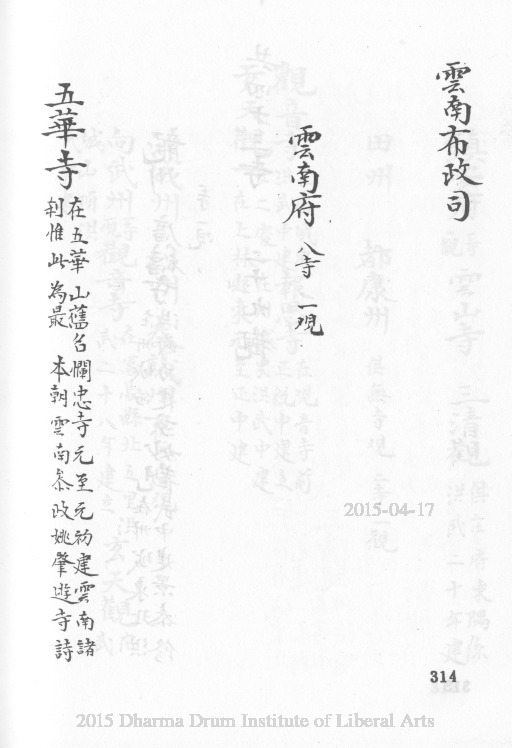 雲南布政司
雲南府 八寺 一觀
五華寺 在五華山舊名憫忠寺元至元初建雲南諸
刹惟此為最 本朝雲南叅政姚肇遊寺詩
2015-04-17
314
2015 Dharma Drum Institute of Liberal Arts